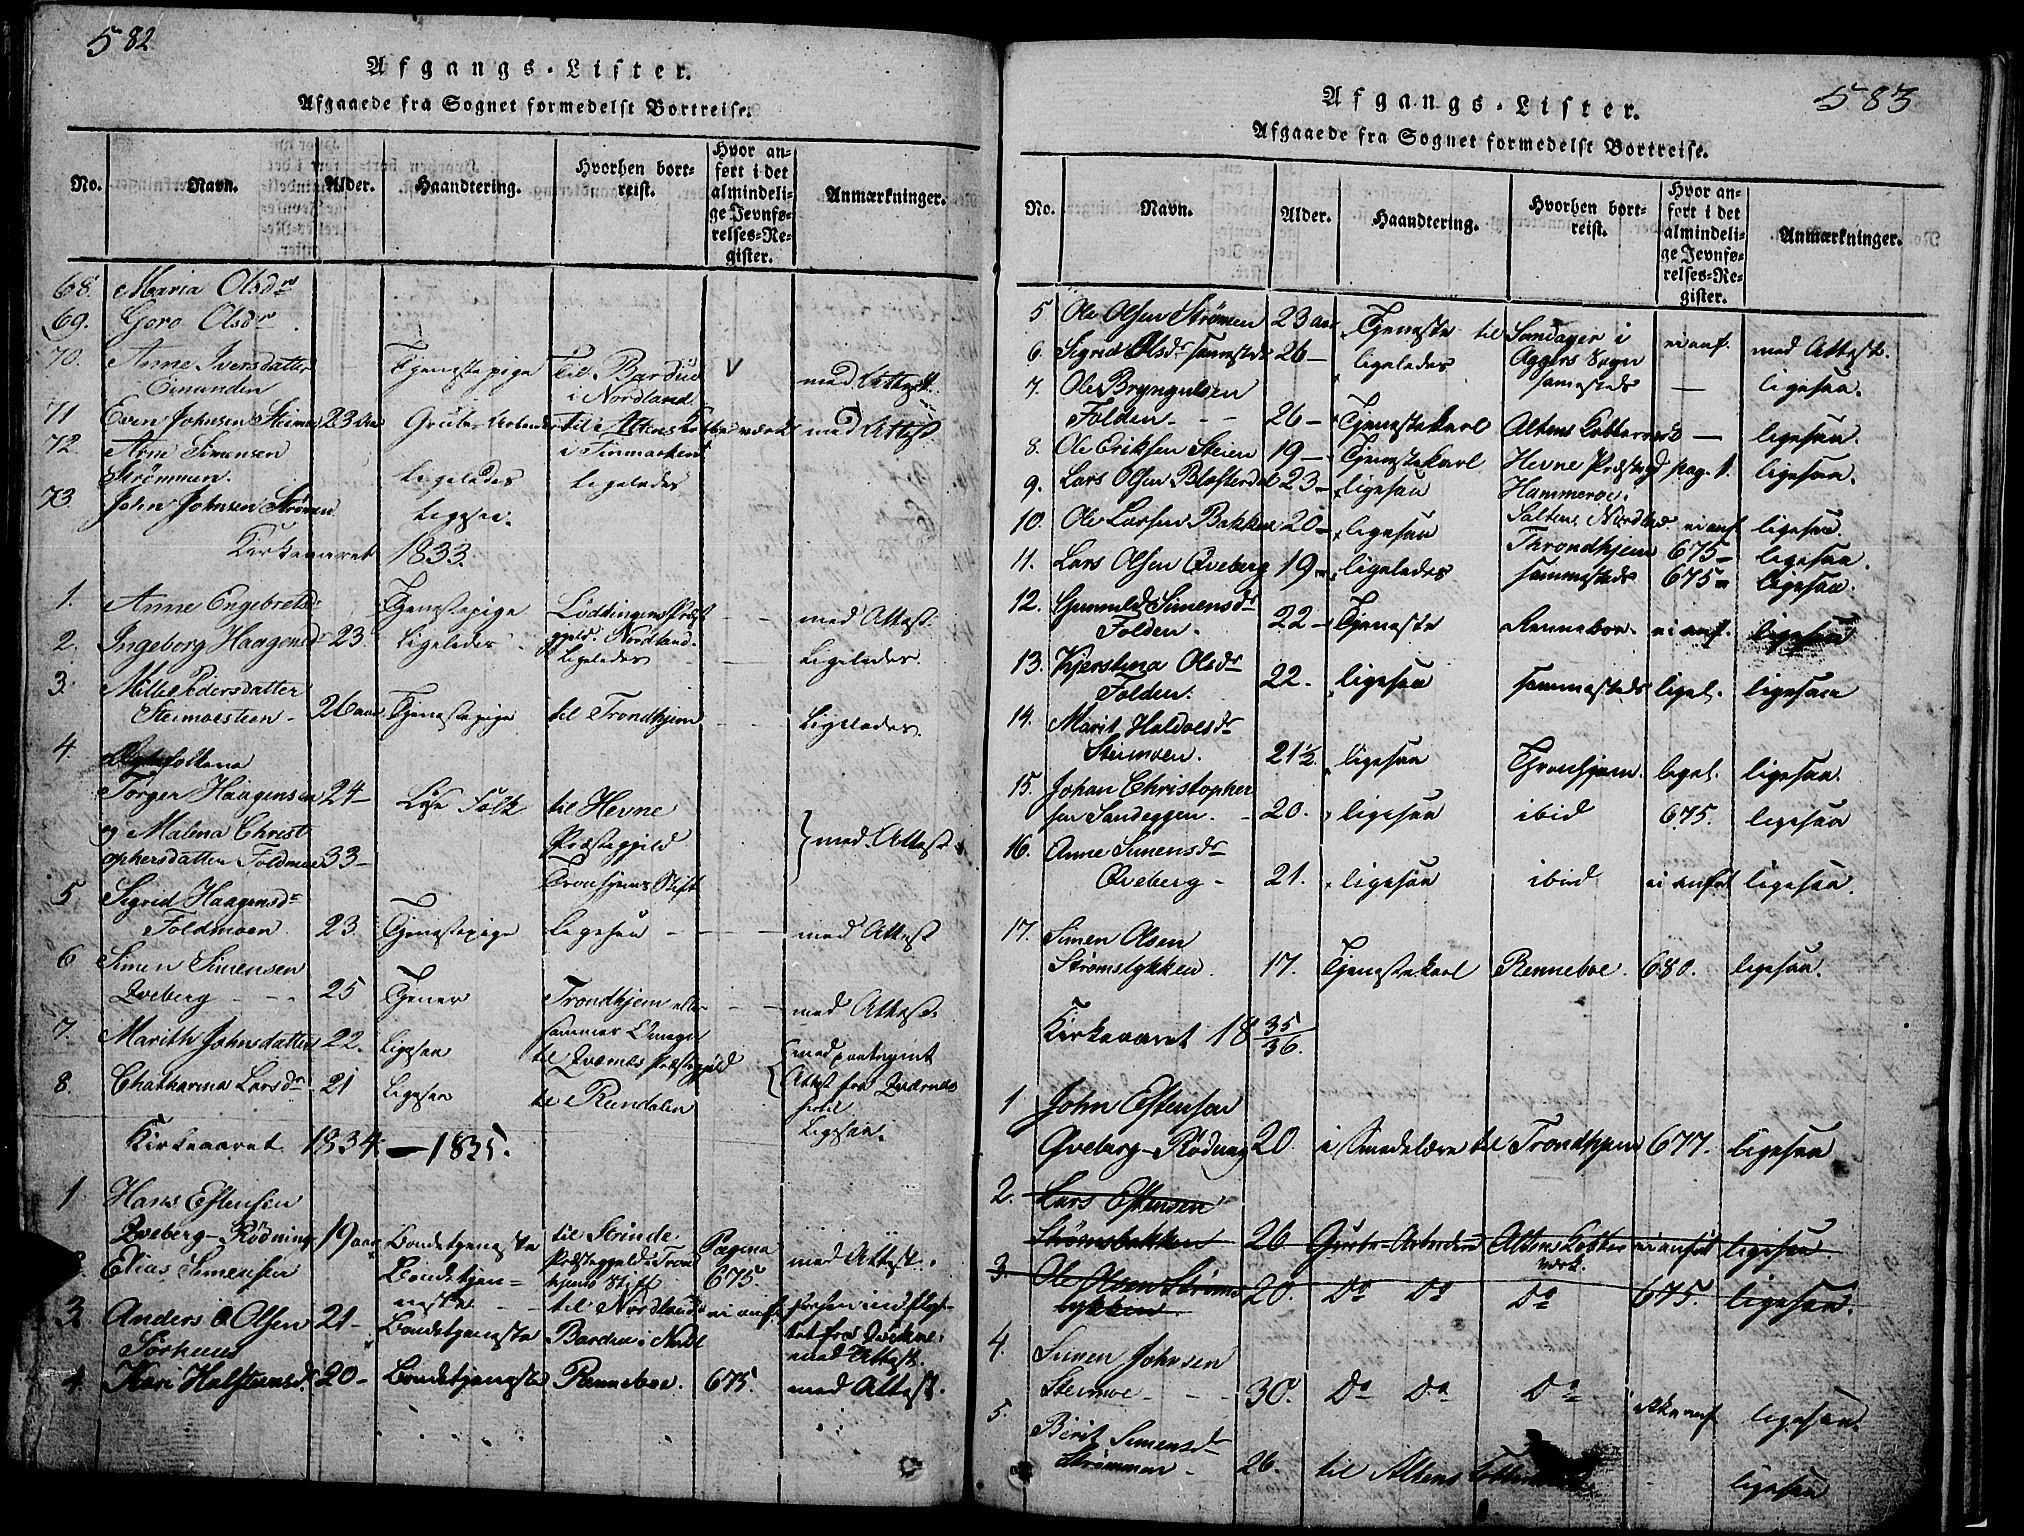 582
Afgangs-Lister.
Afgaaede fra Sognet formedelst Bortreise.
No. Navn. Alder. Haandtering. Hvorhen bortreist. Hvor anført i det almindelige Jevnførelses-Register. Anmærkninger.
68. Maria Olsdr
69. Goro Olsdr
70. Anne Iversdatter Tjenestepige til Bardue V med Attest.
i Nordland
71 Even Johnsen Steimo 23 Aar Grube Arbeider til Altens Kobberværk med Attest
72. Arne Simensen i Finmarken
Strømmen. Ligeledes Ligeledes
73. John Johnsen Strømen Ligesaa.
Kirkeaaret 1833.
1. Anne Engebretsdr Tjenestepige Løddingens Præst med Attest
2. Ingeborg Haagensdr 23. Ligeledes gjeld. Nordland. Ligeledes
Ligeledes
3. Mille Pedersdatter
Steimoestien 26 aar Tjenestepige til Trondhjem Ligeledes.
4. Ægtefolkene
Torger Haagensen 24 Løse Folk til Hevne
og Malena Christ Præstegjeld med Attest
ophersdatter Foldmoe 33 Tronhjems Stift
5 Sigrid Haagensdr
Foldmoen. 23. Tjenestepige Ligesaa med Attest
6 Simen Simensen
Qveberg 25 Tjener Trondhjem eller med Attest.
7. Marith Johnsdatter 22. ligesaa
til Præstegjeld
8. Chatharina Larsdr 21 ligesaa til Rendalen
Ligesaa.
Kirkeaaret 1834 — 1835.
1 Hans Estensen
Qveberg-Rødning 19 aar Bondetjeneste til Strinde Pagina med Attest.
Præstegjeld Trondhjems Stift 675.
2. Elias Simensen Bondetjeneste til Nordland ei anf.
3. Anders Olsen 21 Bondetjeneste Bardu i Nordl med Attest.
Sørhuus
4. Kari Halsteensdr 20 Bondetjeneste Renneboe. 675. med Attest.
583
Afgangs-Lister.
Afgaaede fra Sognet formedelst Bortreise.
No. Navn. Alder. Haandtering. Hvorhen bortreist. Hvor anført i det almindelige Jevnførelses-Register. Anmærkninger.
5 Ole Olsen Strømen 23 aar Tjeneste til Sandager i ei anf. med Attest.
Aggers Sogn
6. Sigrid Olsdr sammesteds 26 ligeledes sammesteds — ligesaa.
7. Ole Bryngulsen
Folden 26 Tjenestekarl Altens Kobberværk — ligesaa.
8. Ole Eriksen Steien 19 Tjenestekarl Hevne Præstegjd pag. 1. ligesaa.
9. Lars Olsen Blæsterdal 23 ligesaa Hammerøe.
Saltens Nordld ei anf ligesaa.
10. Ole Larsen Bakken 20 ligesaa Throndhjem 675 ligesaa.
11. Lars Olsen Qveberg 19 ligeledes sammesteds 675 ligesaa.
12. Gunnild Simensdr
Folden. 22 Tjeneste Renneboe. ei anf. ligesaa
13. Kjerstina Olsdr
Folden. 22. ligesaa sammesteds liget. ligesaa
14. Marit Haldoesdr
Steimoen. 21½ ligesaa Tronhjem. liget. ligesaa.
15. Johan Christopher
sen Sandeggen. 20. ligesaa ibid 675. ligesaa
16. Anne Simensdr
Qveberg 21. ligesaa ibid ei anført ligesaa.
17. Simen Olsen
Strømslykken. 17. Tjenestekarl Renneboe. 680. ligesaa.
Kirkeaaret 18 35/36.
1 John Estensen
Qveberg-Rødning 20. i Smedelære til Trondhjem 677. ligesaa
2. Lars Estensen
Strømsbakken 26 Grube-Arbeider Altens Kobberværk ei anført ligesaa.
3. Ole Olsen Strømslykken 20. Do Do Do 675. ligesaa.
4. Simen Johnsen
Steimoe 30. Do Do Do ikke anf ligesaa.
5. Berit Simensdr
Strømmen 26. til Altens ligesaa